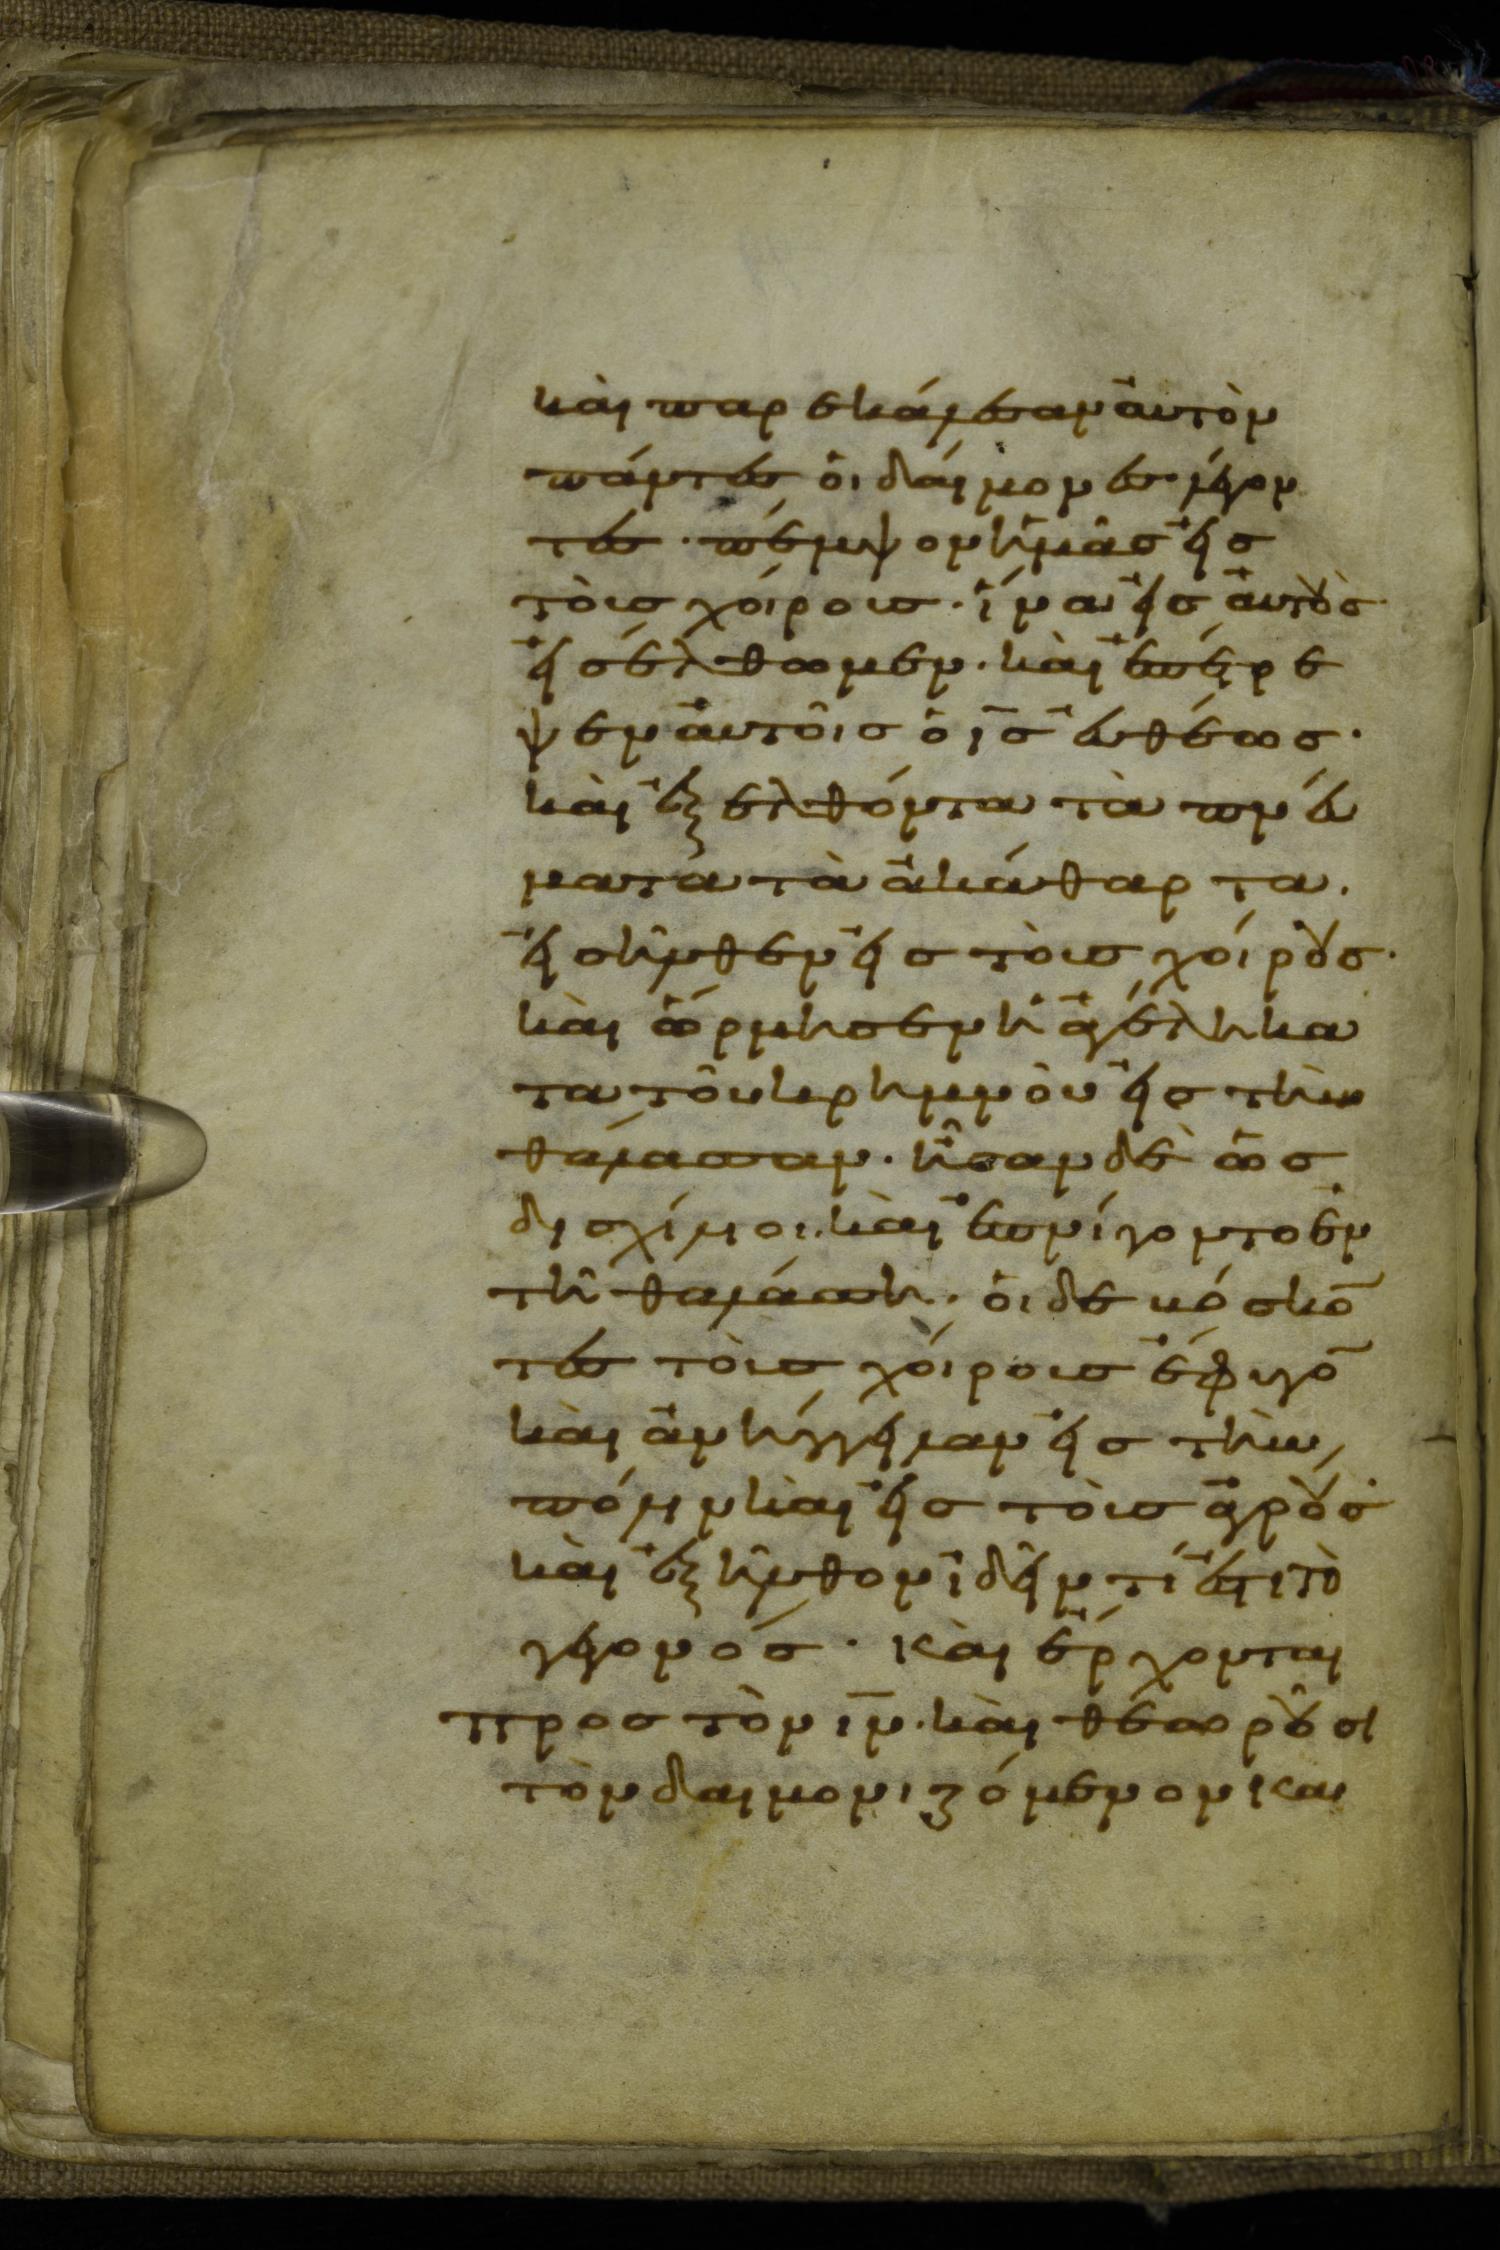 καὶ παρεκάλεσαν ἀυτὸν
πάντες ὁι δάιμονες λέγον
τες · πέμψον ἡμᾶς ἐις
τοὺς χόιρους · ἵνα ἐις ἀυτοὺς
ἐισέλθωμεν · καὶ ἐπέτρε
ψεν ἀυτοῖς ὁ ις̅ ἐυθέως ·
καὶ ἐξελθόντα τὰ πνέυ
ματα τὰ ἀκάθαρτα .
ἐισῆλθεν ἐις τοὺς χόιρους ·
καὶ ὥρμησεν ἡ ἀγέλη κα
τα τοῦ κρημνοῦ ἐις τὴν
θάλασσαν · ἦσαν δὲ ὡς
δισχίλιοι · καὶ ἐπνίγοντο ἐν
τῆ θαλάσση · ὁι δε βόσκο̅
τες τοὺς χόιρους ἔφυγο̅
καὶ ἀνήγγειλαν ἐις τὴν
πόλιν καὶ ἐις τοὺς ἀγρούς ·
καὶ ἐξῆλθον ἰδεῖν τί ἐστι τὸ
γεγονός · καὶ ἔρχονται
προς τὸν ιν̅ · καὶ θεωροῦσι
τὸν δαιμονιζόμενον και